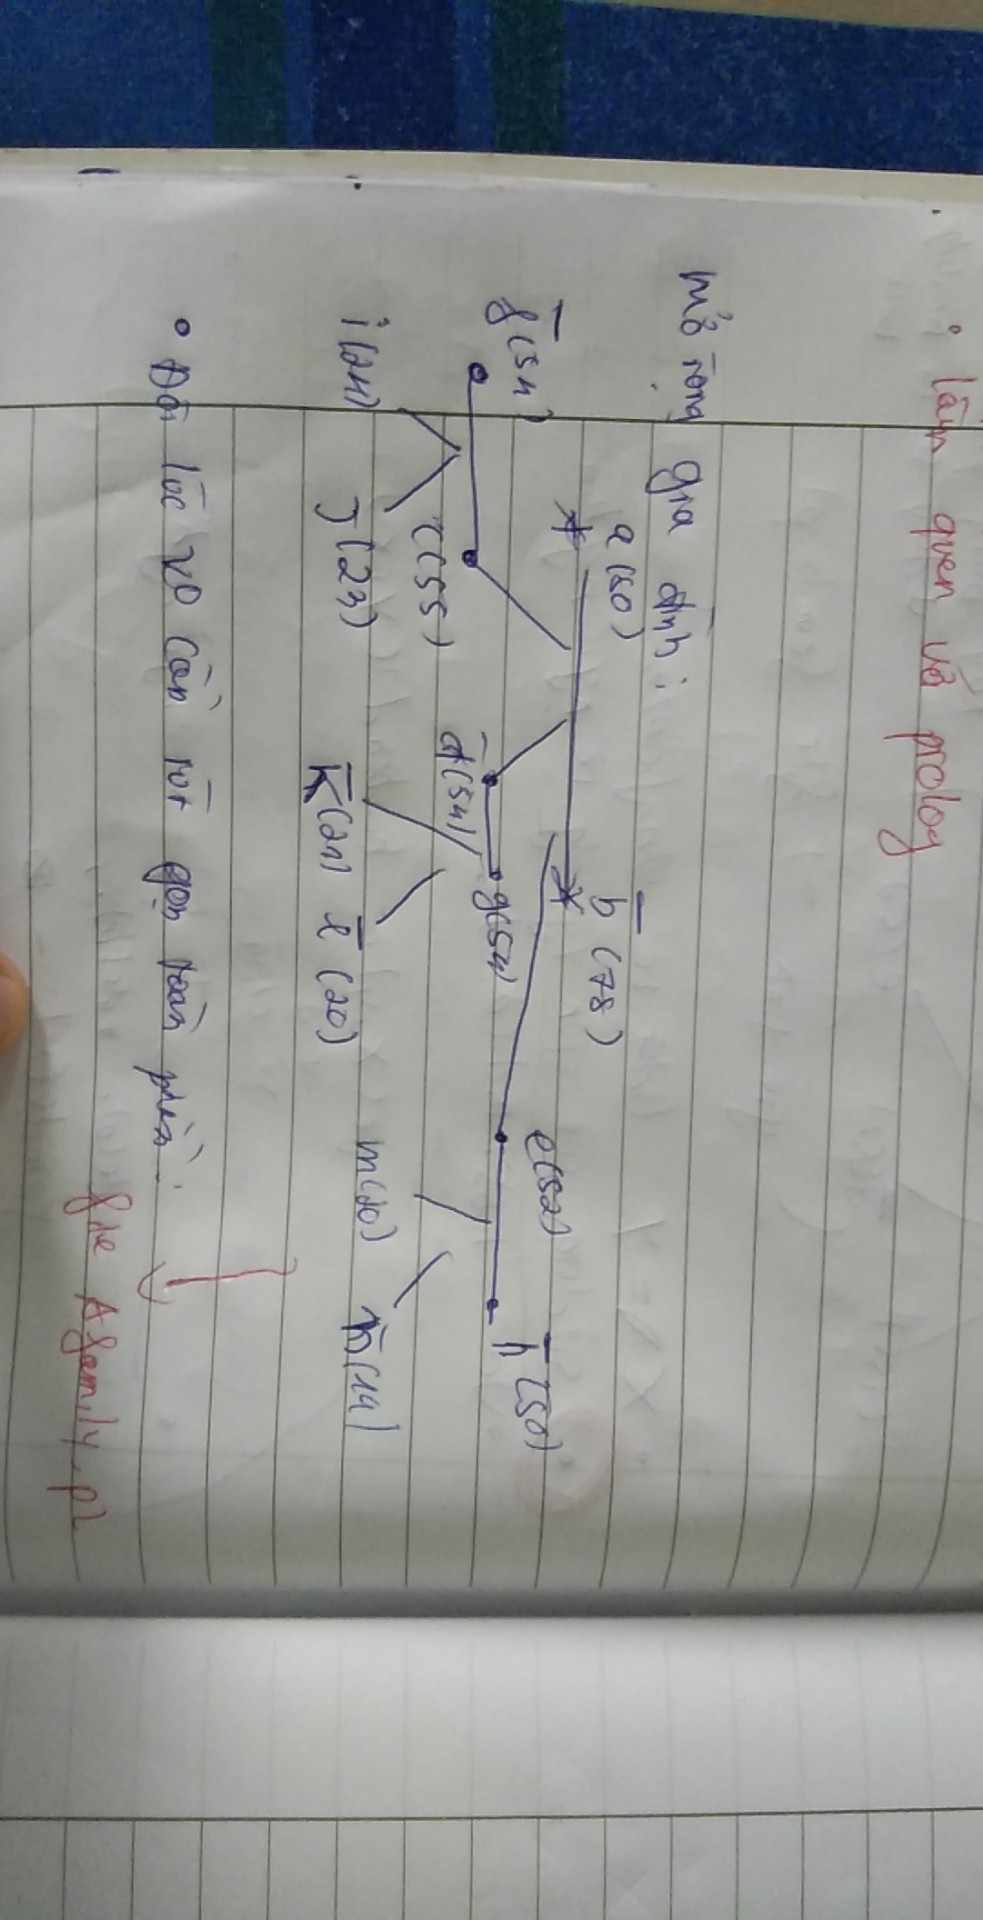 • làm quen về prolog
mở rộng gia đình:
a (80) b̅ (78)
f̅(54) e(52) h̅ (50)
d̅(54) g(54)
c(55)
i(24) J(23) K̅(21) l̅ (20) m(20) n̅(19)
• Đôi lúc vợ cần rút gọn toàn phần:
file Afamily.pl